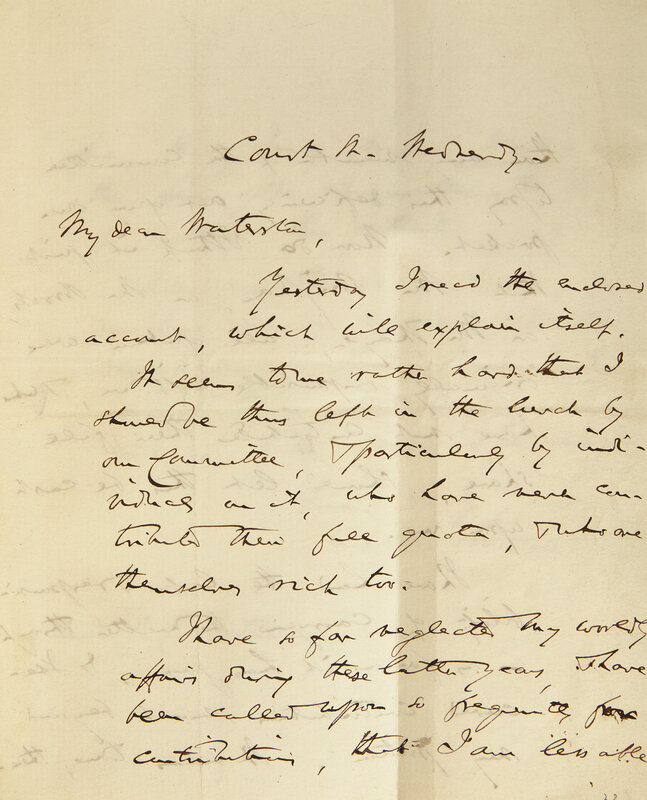 Court St. Wednesdy -
My dear Waterston,
Yesterday I recd the enclosed
account, which will explain itself.
It seems to me rather hard that I
should be thus left in the lurch by
our Committee, & particularly by indi-
viduals on it, who have never con-
tributed their full quota, & who are
themselves rich too.
I have so far neglected my worldly
affairs during these latter years, & have
been called upon so frequently for
contributions, that I am less able